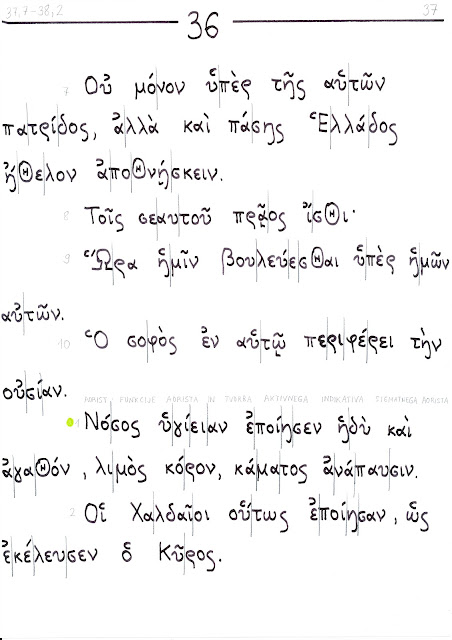 37,7-38,2 37
36
7 Οὐ μόνον ὑπὲρ τῆς αὑτῶν
πατρίδος, ἀλλὰ καὶ πάσης Ἑλλάδος
ἤθελον ἀποθνῄσκειν.
8 Τοῖς σεαυτοῦ πρᾷος ἴσθι·
9 Ὥρα ἡμῖν βουλεύεσθαι ὑπὲρ ἡμῶν
αὐτῶν.
10 Ὁ σοφὸς ἐν αὑτῷ περιφέρει τὴν
οὐσίαν.
AORIST, FUNKCIJE AORISTA IN TVORBA AKTIVNEGA INDIKATIVA SIGMATNEGA AORISTA
1 Νόσος ὑγίειαν ἐποίησεν ἡδὺ καὶ
ἀγαθόν, λιμὸς κόρον, κάματος ἀνάπαυσιν.
2 Οἱ Χαλδαῖοι οὕτως ἐποίησαν, ὡς
ἐκέλευσεν ὁ Κῦρος.